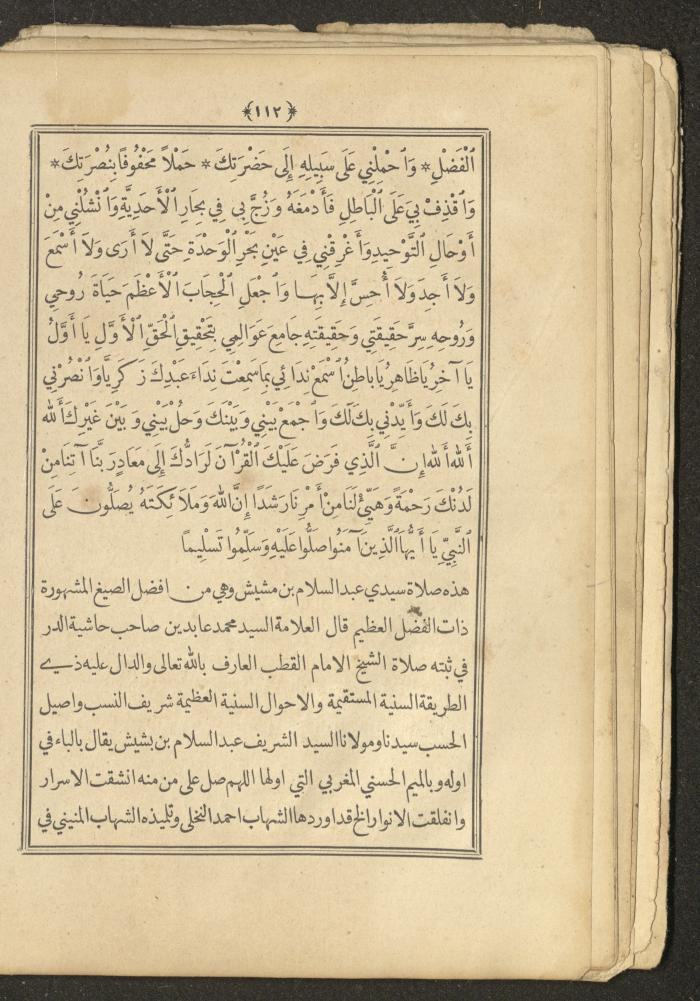 ﴿١١٢﴾
اَلْفَضْلِ * وَاَحْمِلْنِي عَلَى سَبِيلِهِ إِلَى حَضْرَتِكَ * حَمْلاً مَحْفُوفًا بِنُصْرَتِكَ *
وَاَقْذِفْ بِي عَلَى اَلْبَاطِلِ فَأَدْمَغَهُ وَزُجَّ بِي فِي بِحَارِ اَلْأَحَدِيَّةِ وَاَنْشُلْنِي مِنْ
أَوْحَالِ اَلتَّوْحِيدِ وَأَغْرِقْنِي فِي عَيْنِ بَحْرِ اَلْوَحْدَةِ حَتَّى لاَ أَرَى وَلاَ أَسْمَعَ
وَلاَ أَجِدَ وَلاَ أُحِسَّ إِلاَّ بِهَا وَاَجْعَلِ اَلْحِجَابَ اَلْأَعْظَمَ حَيَاةَ رُوحِي
وَرُوحِهِ سِرَّ حَقِيقَتِي وَحَقِيقَتِهِ جَامِعَ عَوَالِمِي بِتَحْقِيقِ اَلْحَقِّ اَلْأَوَّلِ يَا أَوَّلُ
يَا آخِرُ يَا ظَاهِرُ يَا بَاطِنُ اُسْمَعْ نِدَائِي بِمَا سَمِعْتَ نِدَاءَ عَبْدِكَ زَكَرِيَّا وَاَنْصُرْنِي
بِكَ لَكَ وَأَيِّدْنِي بِكَ لَكَ وَاَجْمَعْ بَيْنِي وَبَيْنَكَ وَحُلْ بَيْنِي وَبَيْنَ غَيْرِكَ أَللهُ
أَللهُ أَللهُ إِنَّ اَلَّذِي فَرَضَ عَلَيْكَ اَلْقُرْآنَ لَرَادُّكَ إِلَى مَعَادٍ رَبَّنَا آتِنَا مِنْ
لَدُنْكَ رَحْمَةً وَهَيِّئْ لَنَا مِنْ أَمْرِنَا رَشَدًا إِنَّ اللهَ وَمَلاَئِكَتَهُ يُصَلُّونَ عَلَى
اَلنَّبِيِّ يَا أَيُّهَا اَلَّذِينَ آمَنُوا صَلُّوا عَلَيْهِ وَسَلِّمُوا تَسْلِيمًا
هذه صلاة سيدي عبد السلام بن مشيش وهي من افضل الصيغ المشهورة
ذات الفضل العظيم قال العلامة السيد محمد عابدين صاحب حاشية الدر
في ثبته صلاة الشيخ الامام القطب العارف بالله تعالى والدال عليه ذي
الطريقة السنية المستقيمة والاحوال السنية العظيمة شريف النسب واصيل
الحسب سيدنا ومولانا السيد الشريف عبد السلام بن بشيش يقال بالباء في
اوله وبالميم الحسني المغربي التي اولها اللهم صل على من منه انشقت الاسرار
وانفلقت الانوار الخ قد اوردها الشهاب احمد النخلي وتلميذه الشهاب المنيني في